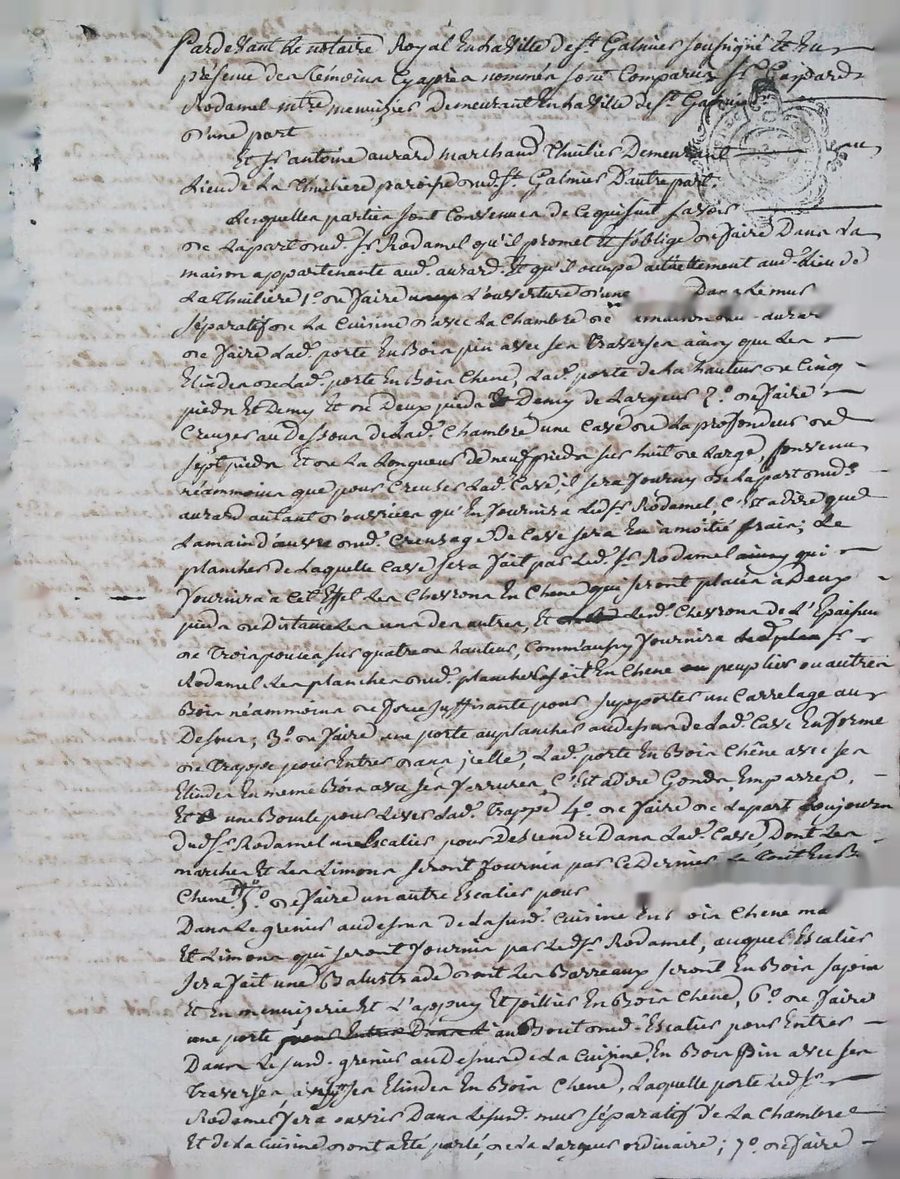 Pardevant le notaire Royal En La Ville de St. Galmier soussigné Et En
présence des témoins Cy après nommés sont Comparus Sr. Gaspard
Rodamel mtre menuizier Demeurant En La Ville de St. Galmier
d'une part
Et Sr. antoine aurard marchand thuilier Demeurant au
Lieu de La thuiliere paroisse dud. St. Galmier D'autre part.
Lesquelles parties sont Convenues de Ce qui suit savoir
de La part dud. Sr. Rodamel qu'il promet Et s'oblige de faire Dans La
maison appartenante aud. aurard Et qu'il ocupe actuellement aud. Lieu de
La thuiliere 1º. de faire L'ouverture d'une Dans Le mur
séparatif de La Cuisine d'avec La Chambre de maison aurard
de faire Lad. porte En Bois pin avec ses traverses ainsy que Les
Elindes de Lad. porte En Bois Chene, Lad. porte de La hauteur de Cinq
pieds Et Demy Et de Deux pieds Et Demy de Largeur 2º. de faire
Creuser au Dessous de Lad. Chambre une Cave de La profondeur de
sept pieds Et de La Longueur de neuf pieds sur huit de Large, Convenu
néammoins que pour Creuser Lad. Cave, il sera fourny de La part dud.
aurard autant d'ouvriers qu'En fournira Led. Sr. Rodamel, C'Est adire que
La main d'œuvre dud. Creuzage de Cave sera En a moitié frais; Le
plancher de Laquelle Cave sera fait par Led. Sr. Rodamel qui
fournira a Cet Effet Les Chevrons En Chene qui seront placés a Deux
pieds de Distance Les uns des autres, Et Lesd. Chevrons de L'Epaisseur
de trois pouces sur quatre de hauteur, Comm'aussy fournira Led. Sr.
Rodamel Les planches dud. plancher soit En Chene ou peuplier ou autres
Bois néammoins de force suffisante pour supporter un Carrelage au
Dessus; 3º. de faire une porte au plancher au dessus de Lad. Cave En forme
de trappe pour Entrer Dans icelle, Lad. porte En Bois Chêne avec ses
Elindes En meme Bois avec ses ferrures, C'Est adire Gonds, Emparres,
Et une Boucle pour Lever Lad. Trappe 4º. de faire de La part toujours
Dud. Sr. Rodamel un Escalier pour Descendre Dans Lad. Cave Dont Les
marches Et Les Limons seront fournis par Ce Dernier Le tout En B
Chene 5º. de faire un autre Escalier pour
Dans Le grenier au dessus de La susd. Cuisine En Bois Chene ma
Et Limons qui seront fournis par Led. Sr. Rodamel, auquel Escalier
sera fait une Balustrade dont Les Barreaux seront En Bois sapin
Et En menuizerie Et L'appuy Et pillier En Bois Chene, 6º. de faire
une porte au Bout dud. Escalier pour Entrer
Dans Le susd. grenier au dessus de La Cuisine En Bois pin avec ses
traverses Et ses Elindes En Bois Chene, Laquelle porte Led. Sr.
Rodamel fera ouvrir Dans Le susd. mur séparatif de La Chambre
Et de La Cuisine dont a Eté parlé, de La Largeur ordinaire; 7º. de faire